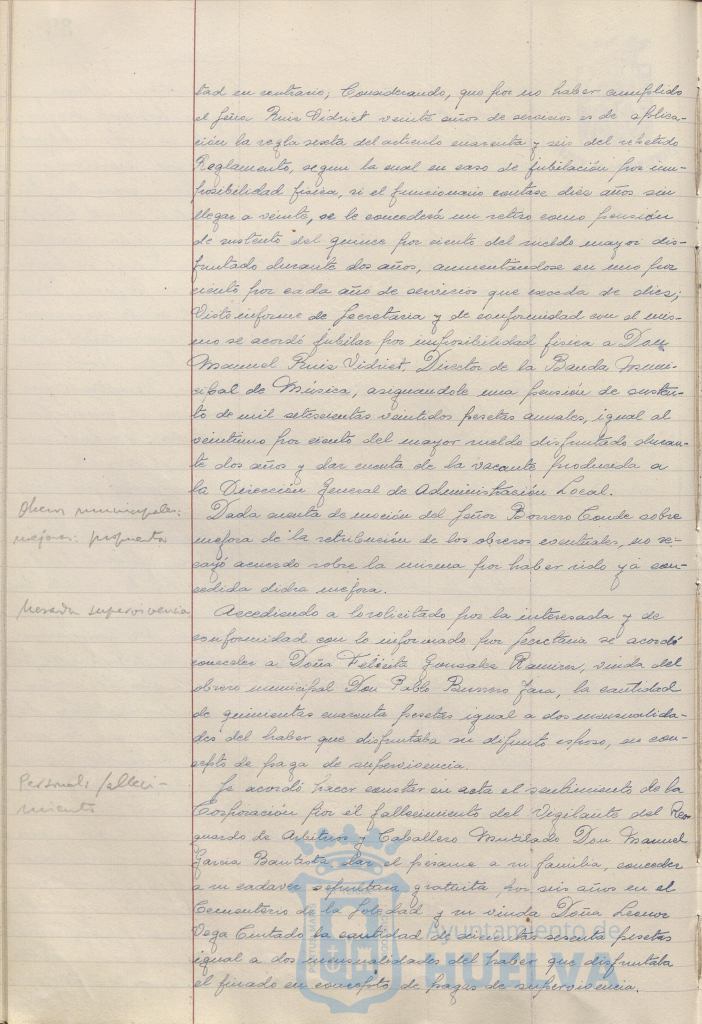 tad en contrario; Considerando, que por no haber cumplido
el Señor Ruiz Vidriet veinte años de servicios es de aplica-
ción la regla sexta del artículo cuarenta y seis del repetido
Reglamento, segun la cual en caso de jubilación por im-
posibilidad física, si el funcionario contase diez años sin
llegar a veinte, se le concederá un retiro como pensión
de sustento del quince por ciento del sueldo mayor dis-
frutado durante dos años, aumentandose en uno por
ciento por cada año de servicios que exceda de diez;
Visto informe de Secretaria y de conformidad con el mis-
mo se acordó jubilar por imposibilidad física a Don
Manuel Ruiz Vidriet, Director de la Banda Muni-
cipal de Música, asignandole una pensión de susten-
to de mil setecientas veintidos pesetas anuales, igual al
veintiuno por ciento del mayor sueldo disfrutado duran-
te dos años y dar cuenta de la vacante producida a
la Dirección General de Administración Local.
Obreros municipales:
mejoras: propuesta
Dada cuenta de moción del Señor Borrero Conde sobre
mejora de la retribución de los obreros eventuales, no re-
cayó acuerdo sobre la misma por haber sido yá con-
cedida dicha mejora.
Mesada supervivencia
Accediendo a lo solicitado por la interesada y de
conformidad con lo informado por Secretaria se acordó
conceder a Doña Felicita Gonzalez Ramirez, viuda del
obrero municipal Don Pablo Borrero Jara, la cantidad
de quinientas cuarenta pesetas igual a dos mensualida-
des del haber que disfrutaba su difunto esposo, en con-
cepto de paga de supervivencia.
Personal: falleci-
miento
Se acordó hacer constar en acta el sentimiento de la
Corporación por el fallecimiento del Vigilante del Res-
guardo de Arbitrios y Caballero Mutilado Don Manuel
Garcia Bautista, dar el pésame a su familia, conceder
a su cadaver sepultura gratuita por seis años en el
Cementerio de la Soledad y su viuda Doña Leonor
Vega la cantidad de pesetas
igual a dos mensualidades del haber que disfrutaba
el finado en concepto de pagas de supervivencia.
Ayuntamiento de
HUELVA